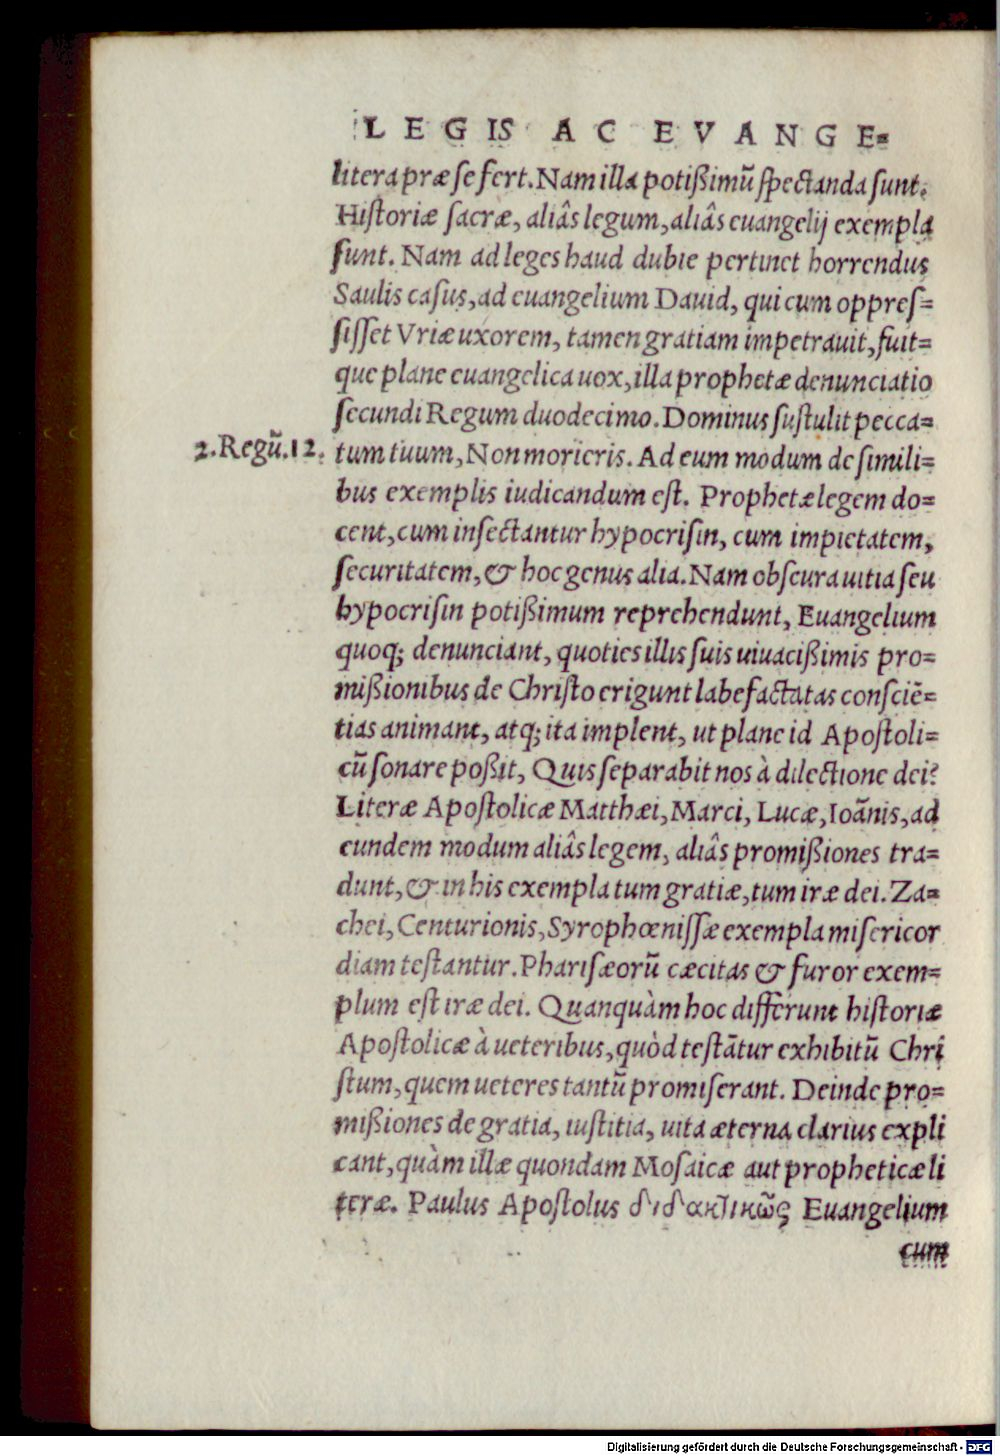 LEGIS AC EVANGE=
litera præ se fert. Nam illa potißimũ spectanda sunt.
Historiæ sacræ, aliâs legum, aliâs euangelij exempla
sunt. Nam ad leges haud dubie pertinet horrendus
Saulis casus, ad euangelium Dauid, qui cum oppres=
sisset Vriæ uxorem, tamen gratiam impetrauit, fuit=
que plane euangelica uox, illa prophetæ denunciatio
secundi Regum duodecimo. Dominus sustulit pecca=
2. Regũ. 12. tum tuum, Non morieris. Ad eum modum de simili=
bus exemplis iudicandum est. Prophetæ legem do=
cent, cum insectantur hypocrisin, cum impietatem,
securitatem, & hoc genus alia. Nam obscura uitia seu
hypocrisin potißimum reprehendunt, Euangelium
quoq; denunciant, quoties illis suis uiuacißimis pro=
mißionibus de Christo erigunt labefactatas consciẽ=
tias animant, atq; ita implent, ut plane id Apostoli=
cũ sonare poßit, Quis separabit nos à dilectione dei?
Literæ Apostolicæ Matthæi, Marci, Lucæ, Ioãnis, ad
eundem modum aliâs legem, aliâs promißiones tra=
dunt, & in his exempla tum gratiæ, tum iræ dei. Za=
chei, Centurionis, Syrophœnissæ exempla misericor
diam testantur. Pharisæorũ cæcitas & furor exem=
plum est iræ dei. Quanquàm hoc differunt historiæ
Apostolicæ à ueteribus, quòd testãtur exhibitũ Chri
stum, quem ueteres tantũ promiserant. Deinde pro=
mißiones de gratia, iustitia, uita æterna clarius expli
cant, quàm illæ quondam Mosaicæ aut propheticæ li
teræ. Paulus Apostolus διδακτικῶς Euangelium
cum
Digitalisierung gefördert durch die Deutsche Forschungsgemeinschaft - DFG